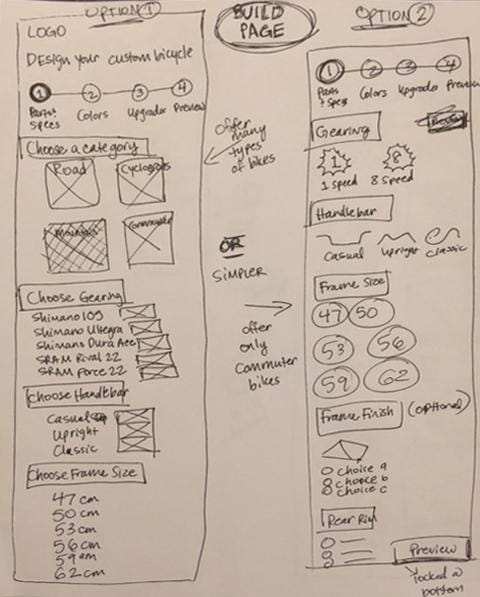 OPTION 1
LOGO
Design your custom bicycle
1 2 3 4
Parts + Specs
Colors
Upgrades
Preview
Choose a category
Road
Cyclocross
Mountain
Commuter
Choose Gearing
Shimano 105
Shimano Ultegra
Shimano Dura Ace
SRAM Rival 22
SRAM Force 22
Choose Handlebar
Casual
Upright
Classic
Choose Frame Size
47 cm
50 cm
53 cm
56 cm
59 cm
62 cm
BUILD
PAGE
Offer
many
types
of bikes
OR
SIMPLER
offer
only
commuter
bikes
OPTION 2
1 2 3 4
Parts + Specs
Colors
Upgrades
Preview
Gearing
1 8
1 Speed 8 Speed
Handlebar
Casual Upright Classic
Frame Size
47 50
53 56
59 62
Frame Finish (optional)
choice a
choice b
choice c
Rear Rim
Preview
locked @
bottom